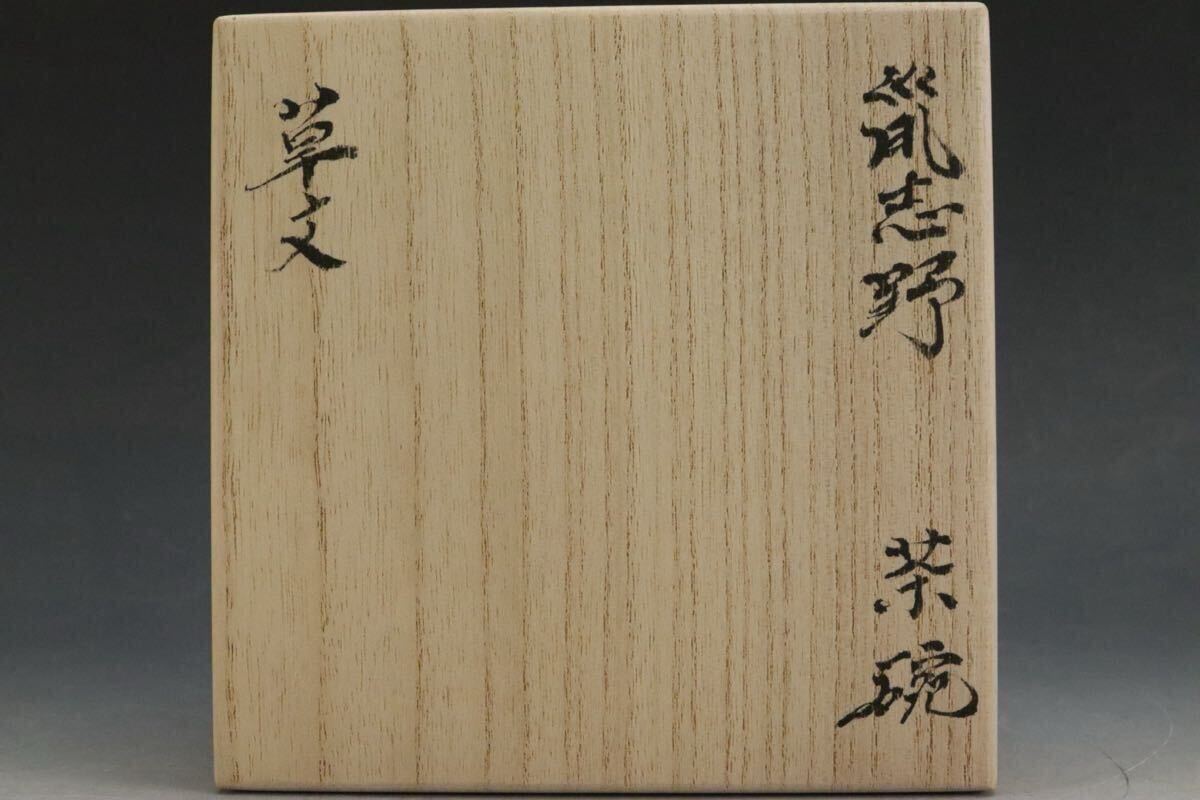 鼠志野 茶碗
草文